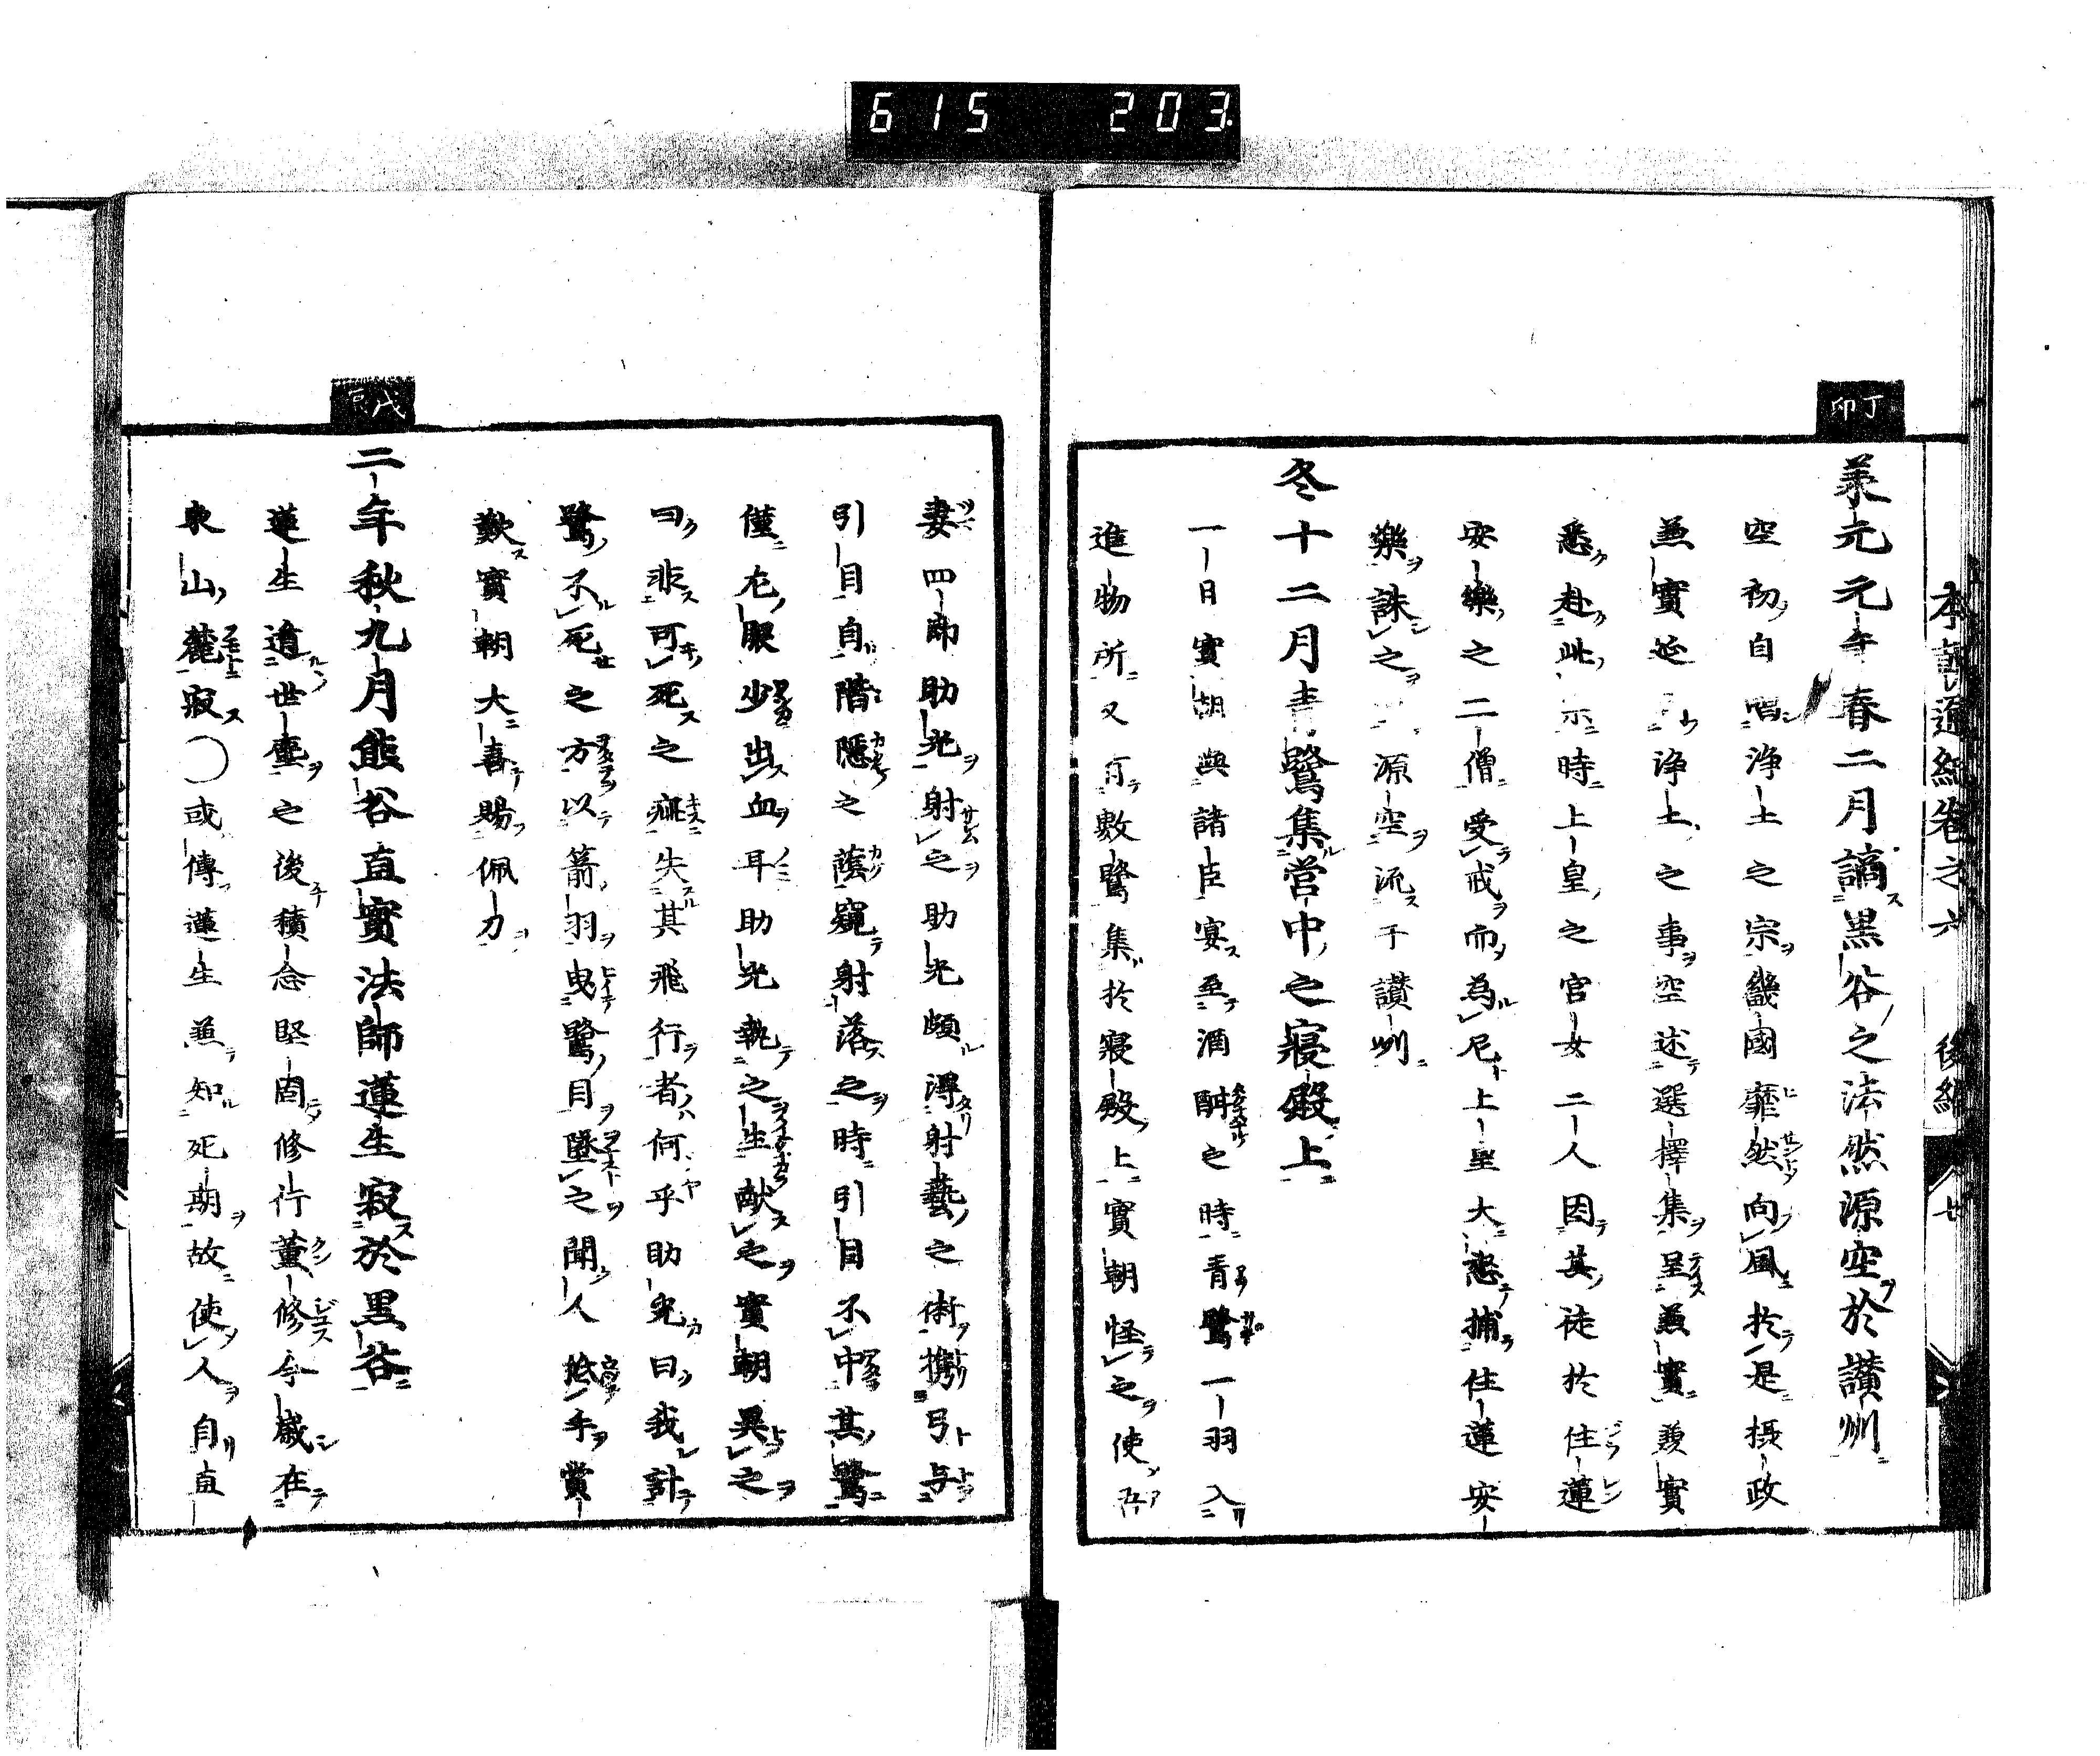 615 203
本朝通紀卷之六 後編 廿
丁卯
承元元年春二月謫黒谷之法然源空於讃州
空初自唱浄土之宗畿國靡然向風於是摂政
兼實延 浄土之事空述選擇集呈兼實兼實
悉赴此 時上皇之官女二人因其徒於住蓮
安樂之二僧受戒而為尼上皇大怒捕住蓮安
樂誅之 源空流于讃州
冬十二月青鷺集営中之寝殿上
一日實朝與諸臣宴至酒酣之時青鷺一羽入
進物所又有數鷺集於寝殿上實朝怪之使吾
妻四郎助光射之助光頗得射藝之術携弓与
引目自階隱之蔭窺射落之時引目不中其鷺
僅尨眼少出血耳助光執之生献之實朝異之
曰非可死之疵失其飛行者何乎助光曰我計
鷺不死之方以箭羽曳鷺目墜之聞人拾手賞
歎實朝大喜賜佩刀
戊辰
二年秋九月熊谷直實法師蓮生寂於黒谷
蓮生遁世塵之後積念堅固修行薫修今歳在
東山麓寂○或傳蓮生兼知死期故使人自直